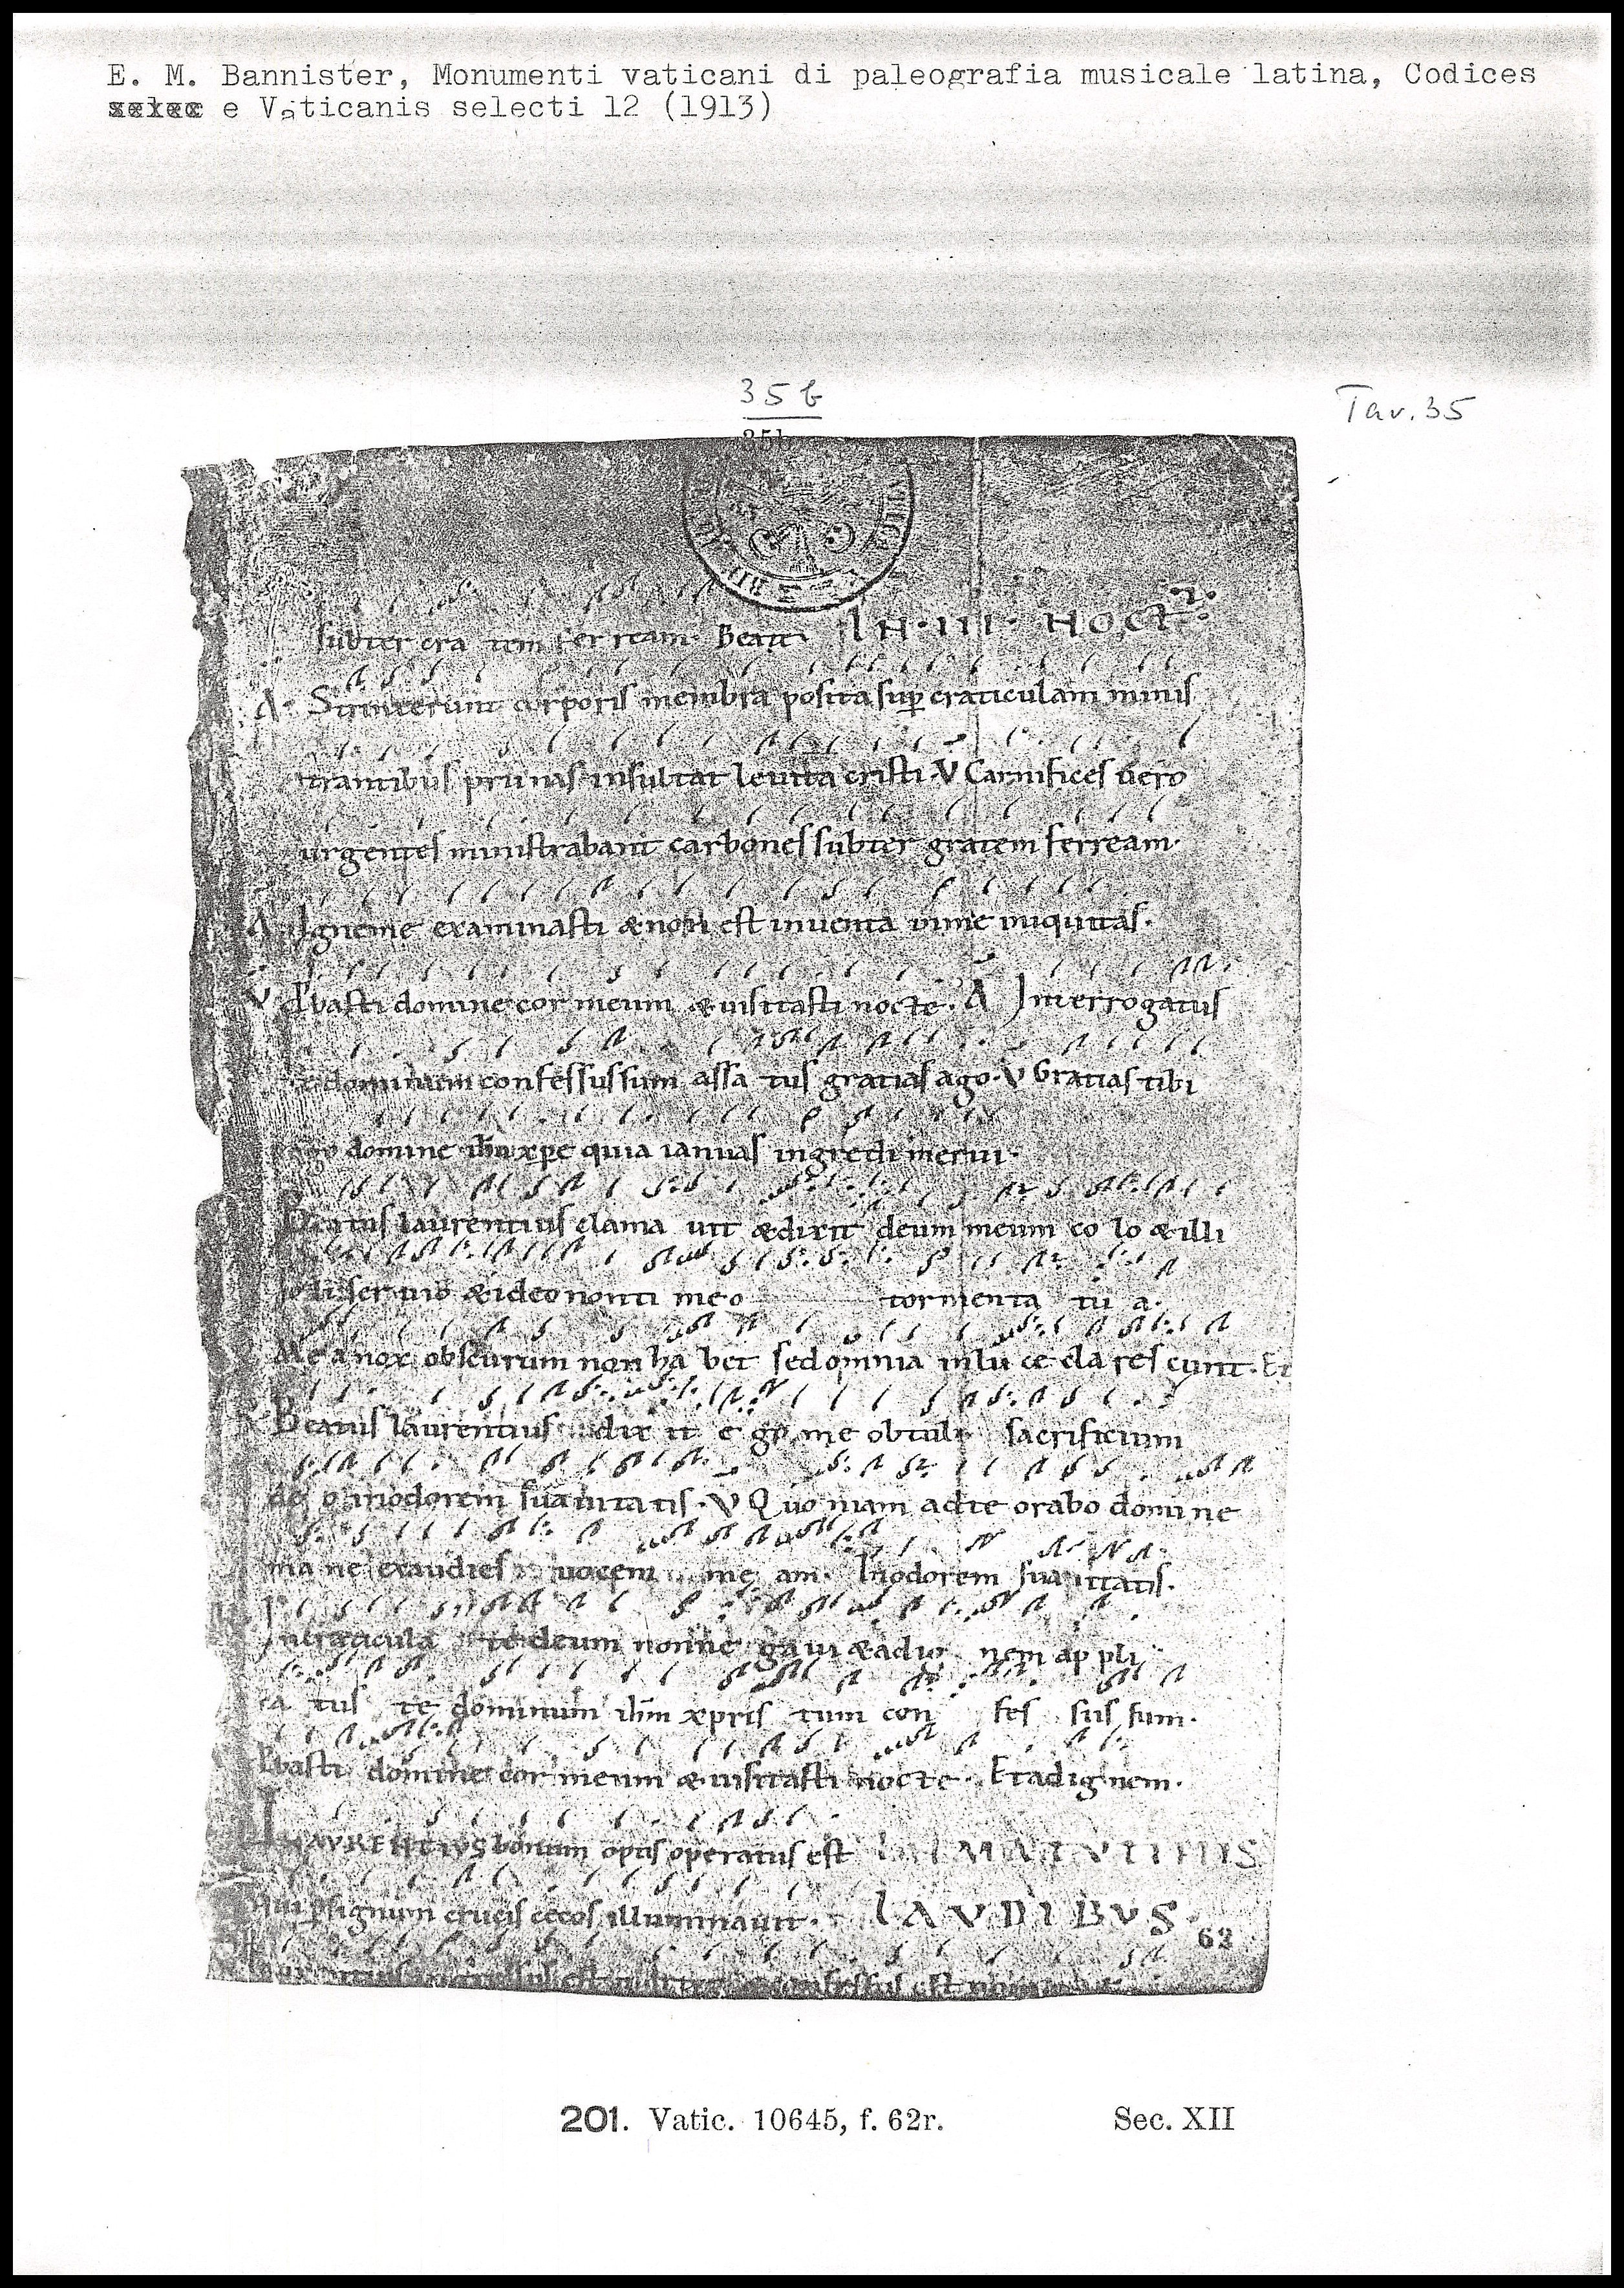 E. M. Bannister, Monumenti vaticani di paleografia musicale latina, Codices
e Vaticanis selecti 12 (1913)
35 b
Tav. 35
35b
subter cra tem fer ream. Beati IN · III · NOCT
A. Strinxerunt corporis membra posita sup craticulam minis
trantibus prunas insultat levita cristi. V Carnifices vero
urgentes ministrabant carbones subter gratem ferream.
A Igneme examinasti & non est inventa in me iniquitas.
V Pbasti domine cor meum & visitasti nocte. A Interrogatus
te dominum confessus sum assa tus gratias ago. V Gratias tibi
ago domine ihu xpe quia ianuas ingredi merui.
Beatus laurentius clama vit & dixit deum meum co lo & illi
soli servio & ideo non ti me o tormenta tu a.
Mea nox obscurum non ha bet sed omnia in lu ce cla res cunt. Et
Beatus laurentius dix it e go me obtuli sacrificium
de o in odorem sua vita tis. V Quo niam ad te orabo domi ne
ma ne exaudies vocem me am. In odorem sua vitatis.
In craticula te deum non ne ga vi & ad ig nem ap pli
ca tus te dominum ihm xpris tum con fes sus sum.
Pbasti domine cor meum & visitasti nocte. Et ad ignem.
LAURENTIUS bonum opus operatus est IN MATUTINIS
qui p signum crucis cecos illuminavit. LAUDIBUS.
62
est
201. Vatic. 10645, f. 62r.
Sec. XII